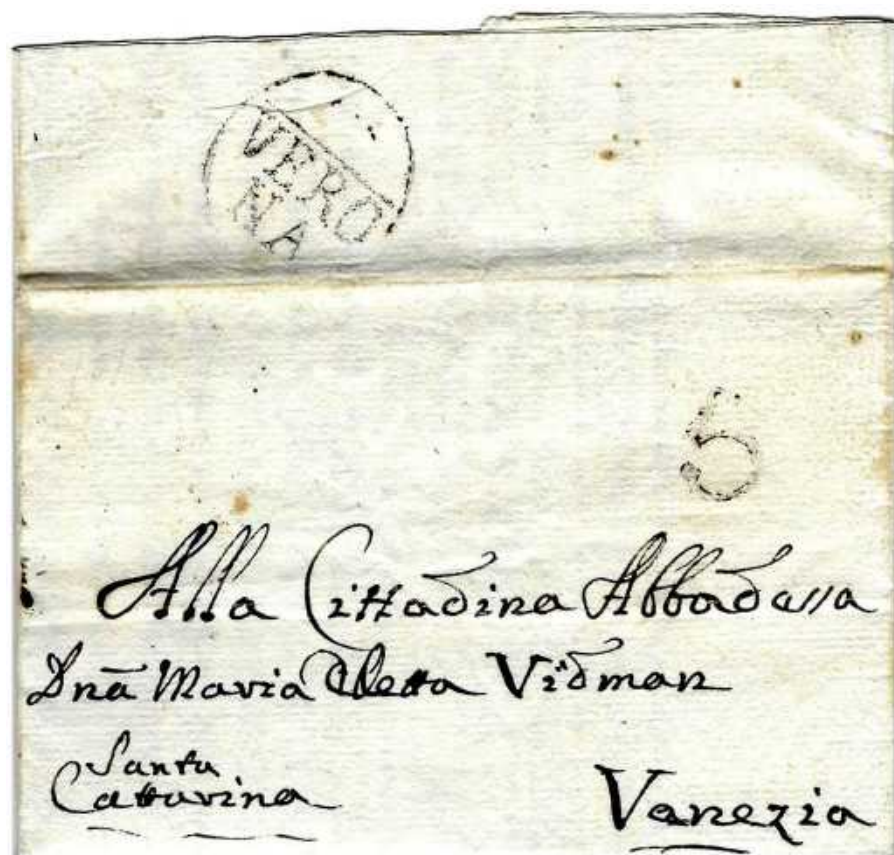 VERO
NA
5
Alla Cittadina Abbadessa
Dnā Maria Eletta Vidman
Santa
Cattarina
Venezia